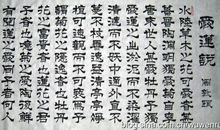 愛蓮說 周敦頤
水陸草木之花可愛者甚
蕃晉陶淵明獨愛菊自李
唐來世人甚愛牡丹予獨
愛蓮之出淤泥而不染濯
清漣而不妖中通外直不
蔓不枝香遠益清亭亭淨
植可遠觀而不可褻玩焉
予謂菊花之隱逸者也牡丹
花之富貴者也蓮花之君
子者也噫菊之愛陶後鮮
有聞蓮之愛同予者何人